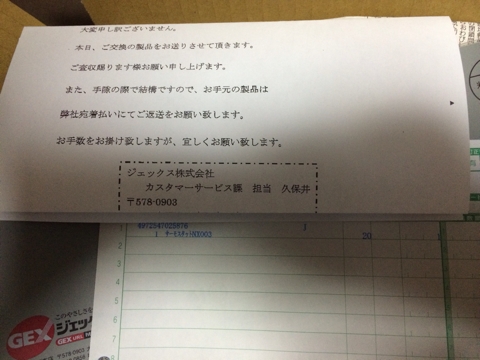 大変申し訳ございません。
本日、ご交換の製品をお送りさせて頂きます。
ご査収賜ります様お願い申し上げます。
また、手隙の際で結構ですので、お手元の製品は
弊社宛着払いにてご返送をお願い致します。
お手数をお掛け致しますが、宜しくお願い致します。
ジェックス株式会社
カスタマーサービス課 担当 久保井
〒578-0903
4972547025876 1
1 20 1
このやさしさを
GEX ジェック
GEX
〒578-0903